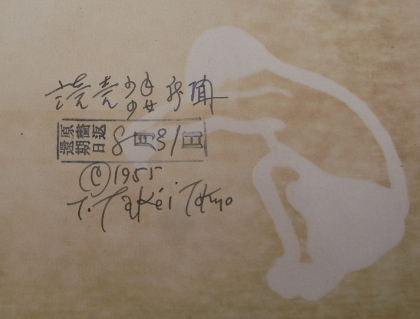 読売少年少女新聞
原畫返還期日 8月31日
©1955
T. Takéi Tokyo